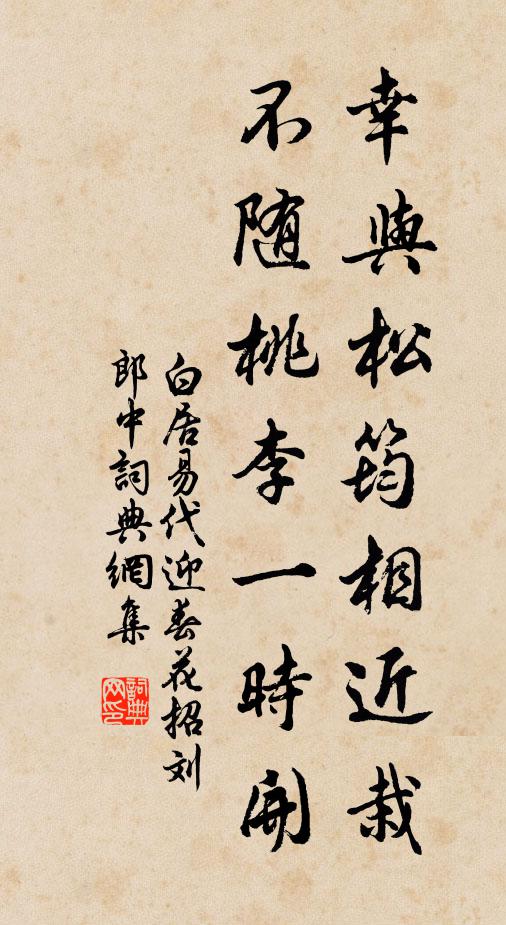 幸與松筠相近栽
不随桃李一時開
白居易代迎春花招刘
郎中詞典網集
詞典
网印